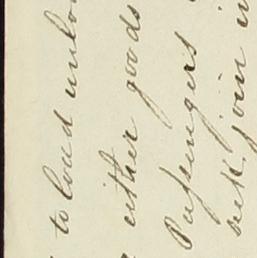 to load unlo
either goods
Passengers
seek, join in